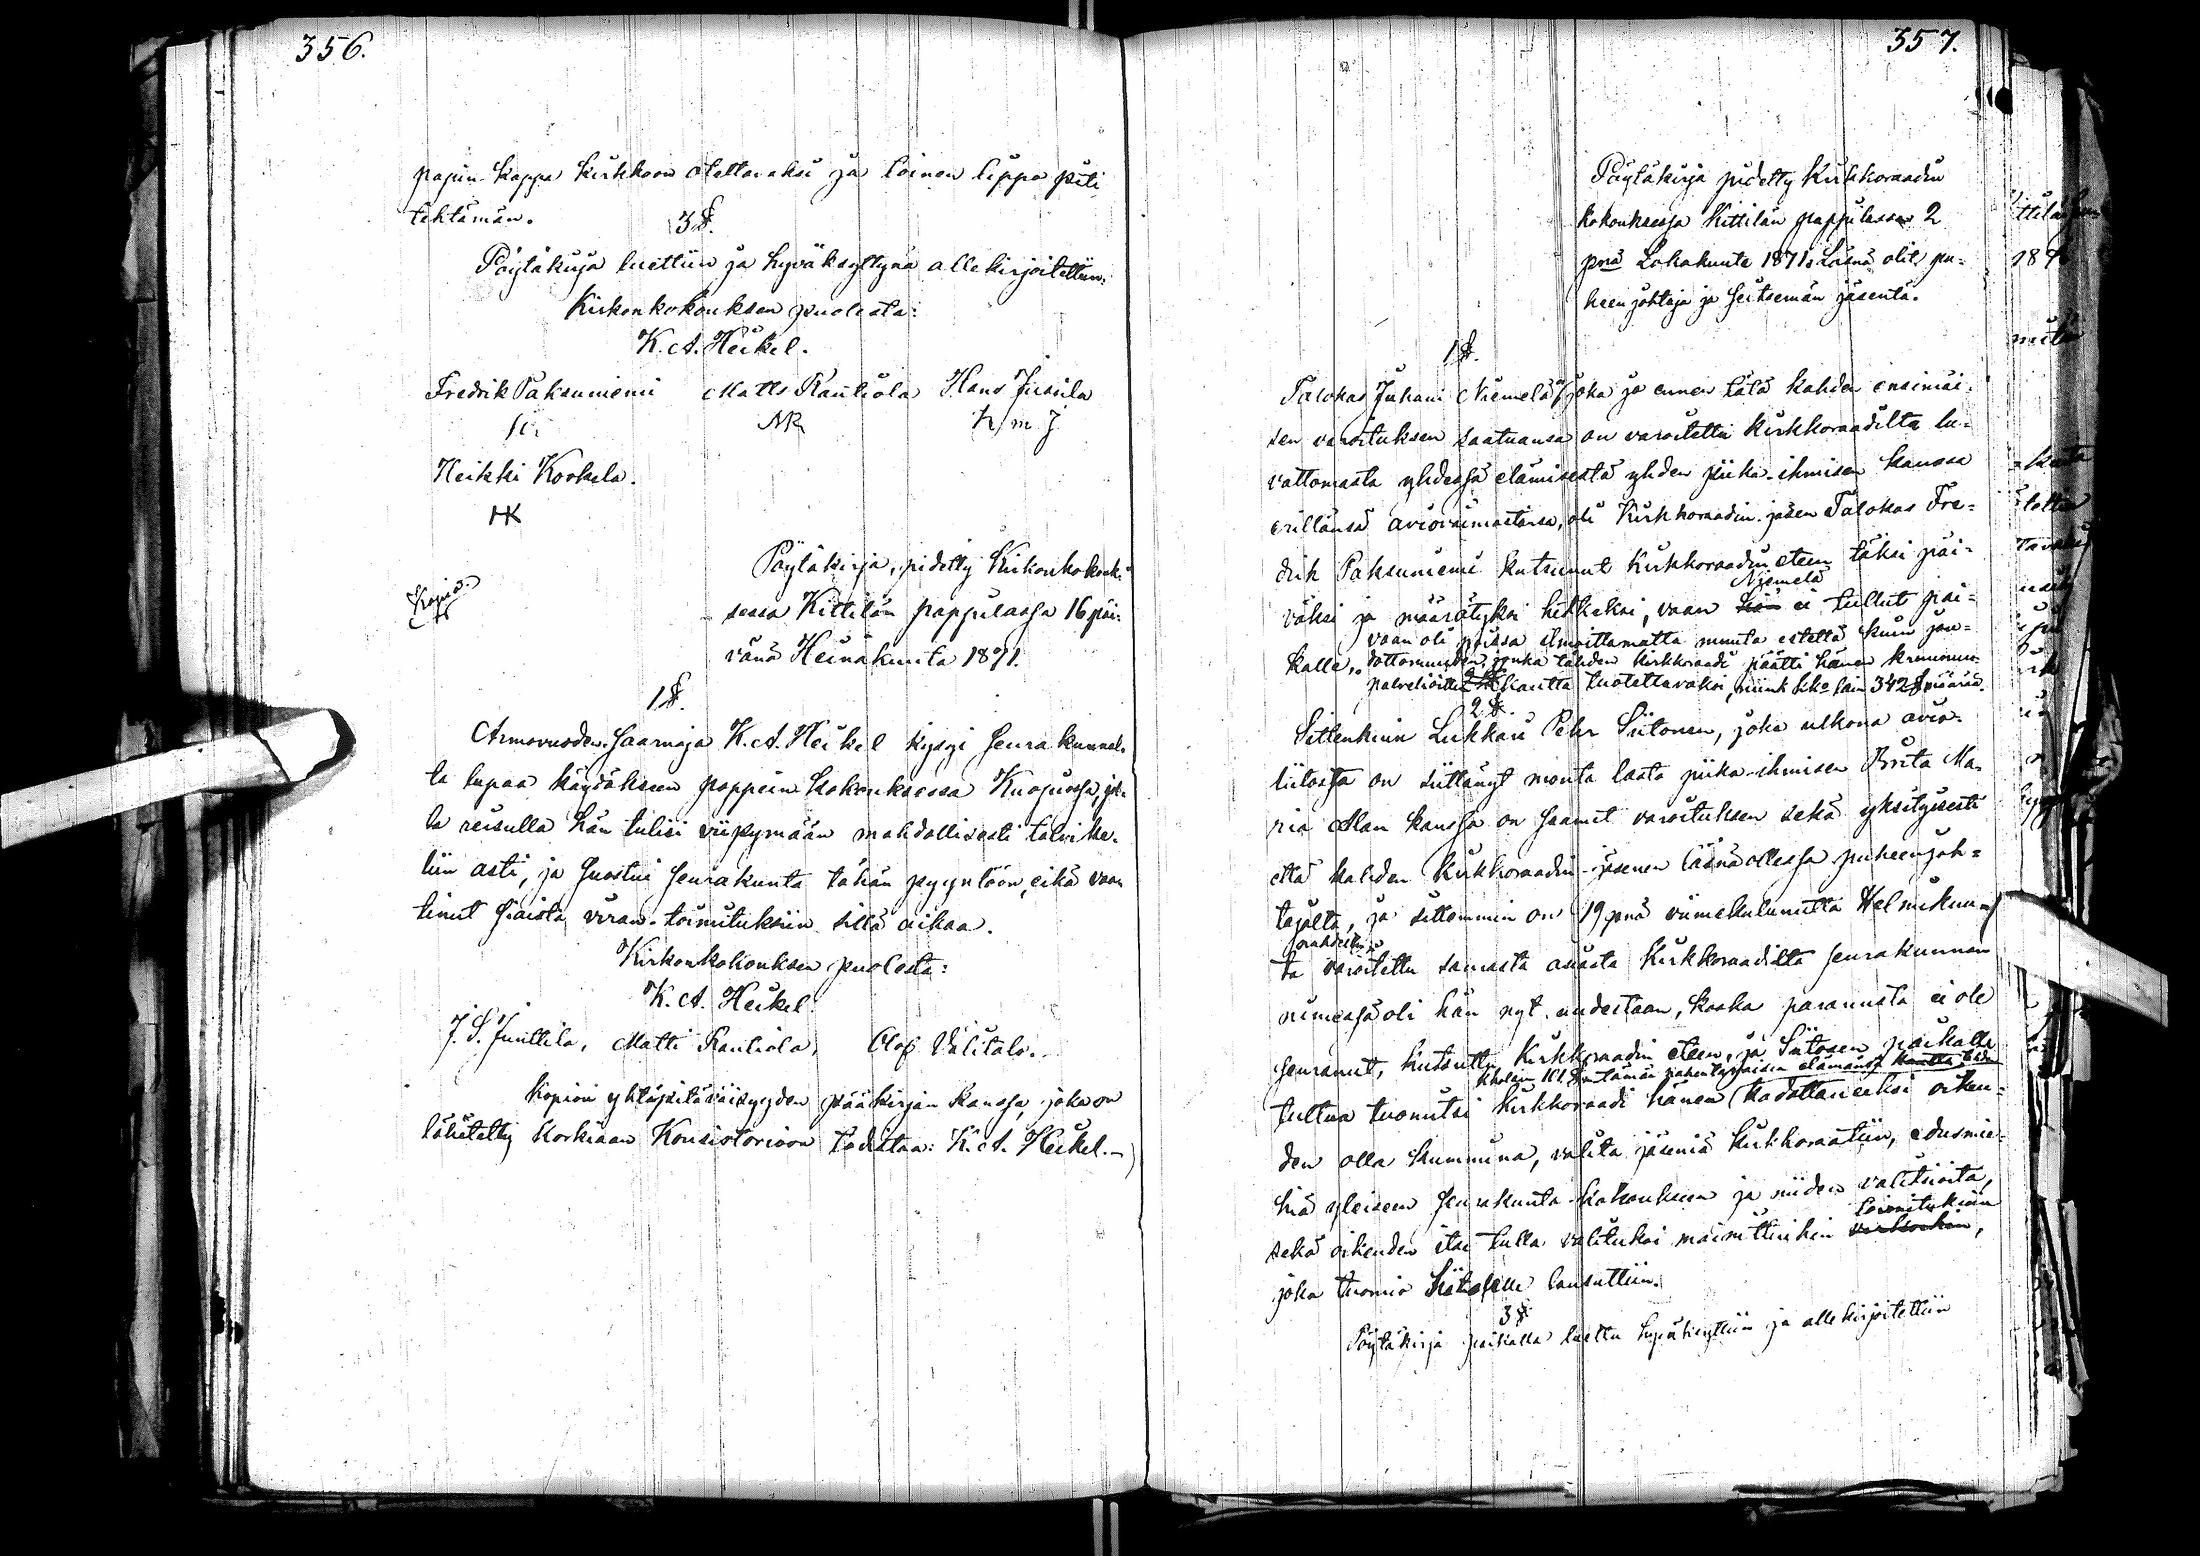 356.
papin-kappa kirkkoon otettavaksi ja toinen lippo piti
tehtämän.
3 §.
Pöytäkirja luettiin ja hyväksyttynä allekirjoitettiin.
Kirkonkokouksen puolesta:
K. A. Heikel.
Fredrik Paksuniemi Matts Rautiola Hans Jussila
MR H m J
Heikki Koskela.
HK
Kopia.
Pöytäkirja, pidetty Kirkonkokouk-
sessa Kittilän pappilassa 16 päi-
vänä Heinäkuuta 1871.
1 §.
Armovuoden Saarnaja K. A. Heikel kysyi Seurakunnal-
ta lupaa käydäkseen pappein kokouksessa Kuopiossa, jol-
la reisulla hän tulisi viipymään mahdollisesti talvike-
liin asti, ja suostui seurakunta tähän pyyntöön, eikä vaa-
tinut sijaista viran-toimituksiin sillä aikaa.
Kirkonkokouksen puolesta:
K. A. Heikel.
J. S. Junttila, Matti Rautiola, Olof Välitalo.
Kopion yhtäpitäväisyyden pääkirjan kanssa, joka on
lähätetty Korkiaan Konsistorioon todistaa: K. A. Heikel.-)
357.
Pöytäkirja pidetty Kirkkoraadin
kokouksessa Kittilän pappilassa 2
pnä Lokakuuta 1871. Läsnä olit pu-
heenjohtaja ja seitsemän jäsentä.
1 §.
Talokas Juhani Niemelä, joka jo ennen tätä kahden ensimäi-
sen varoituksen saatuansa on varoitettu kirkkoraadilta lu-
vattomasta yhdessä elämisestä yhden piika-ihmisen kanssa
erillänsä aviovaimostansa, oli Kirkkoraadin jäsen Talokas Fre-
drik Paksuniemi kutsunut Kirkkoraadin eteen täksi päi-
Niemelä
väksi ja määrätyksi hetkeksi, vaan hän ei tullut pai-
vaan oli poissa ilmoittamatta muuta estettä kuin jou-
kalle. dottomuuden, jonka tähden kirkkoraadi päätti hänen kruunun-
palvelioitten kautta tuotettavaksi, niink Kko lain 342 § määrää.
2 §.
Sittenkuin Lukkari Pehr Siitonen, joka ulkona avio-
liitosta on siittänyt monta lasta piika-ihmisen Brita Ma-
ria Alan kanssa on saanut varoituksen sekä yksityisesti
että kahden Kirkkoraadin-jäsenen läsnä ollessa puheenjoh-
tajalta, ja sittemmin on 19 pnä viimekulunutta Helmikuu-
ta varoitettu samasta asiasta Kirkkoraadilta seurakunnan
nimessä oli hän nyt uudestaan, koska parannusta ei ole
seurannut, kutsuttu Kirkkoraadin eteen, ja Siitosen paikalle
Kkolain 101 § tämän pahentavaisen elämänsä kautta tähden
tultua tuomitsi Kirkkoraadi hänen kadottaneeksi oikeu-
den olla kummina, valita jäseniä Kirkkoraatiin, edusmie-
hiä yleiseen seurakunta-kokoukseen ja niiden valitsioita,
toimituksiin
sekä oikeuden itse tulla valituksi mainittuihin virkoihin,
joka tuomio Siitoselle lausuttiin.
3 §
Pöytäkirja paikalla luettu hyväksyttiin ja allekirjoitettiin